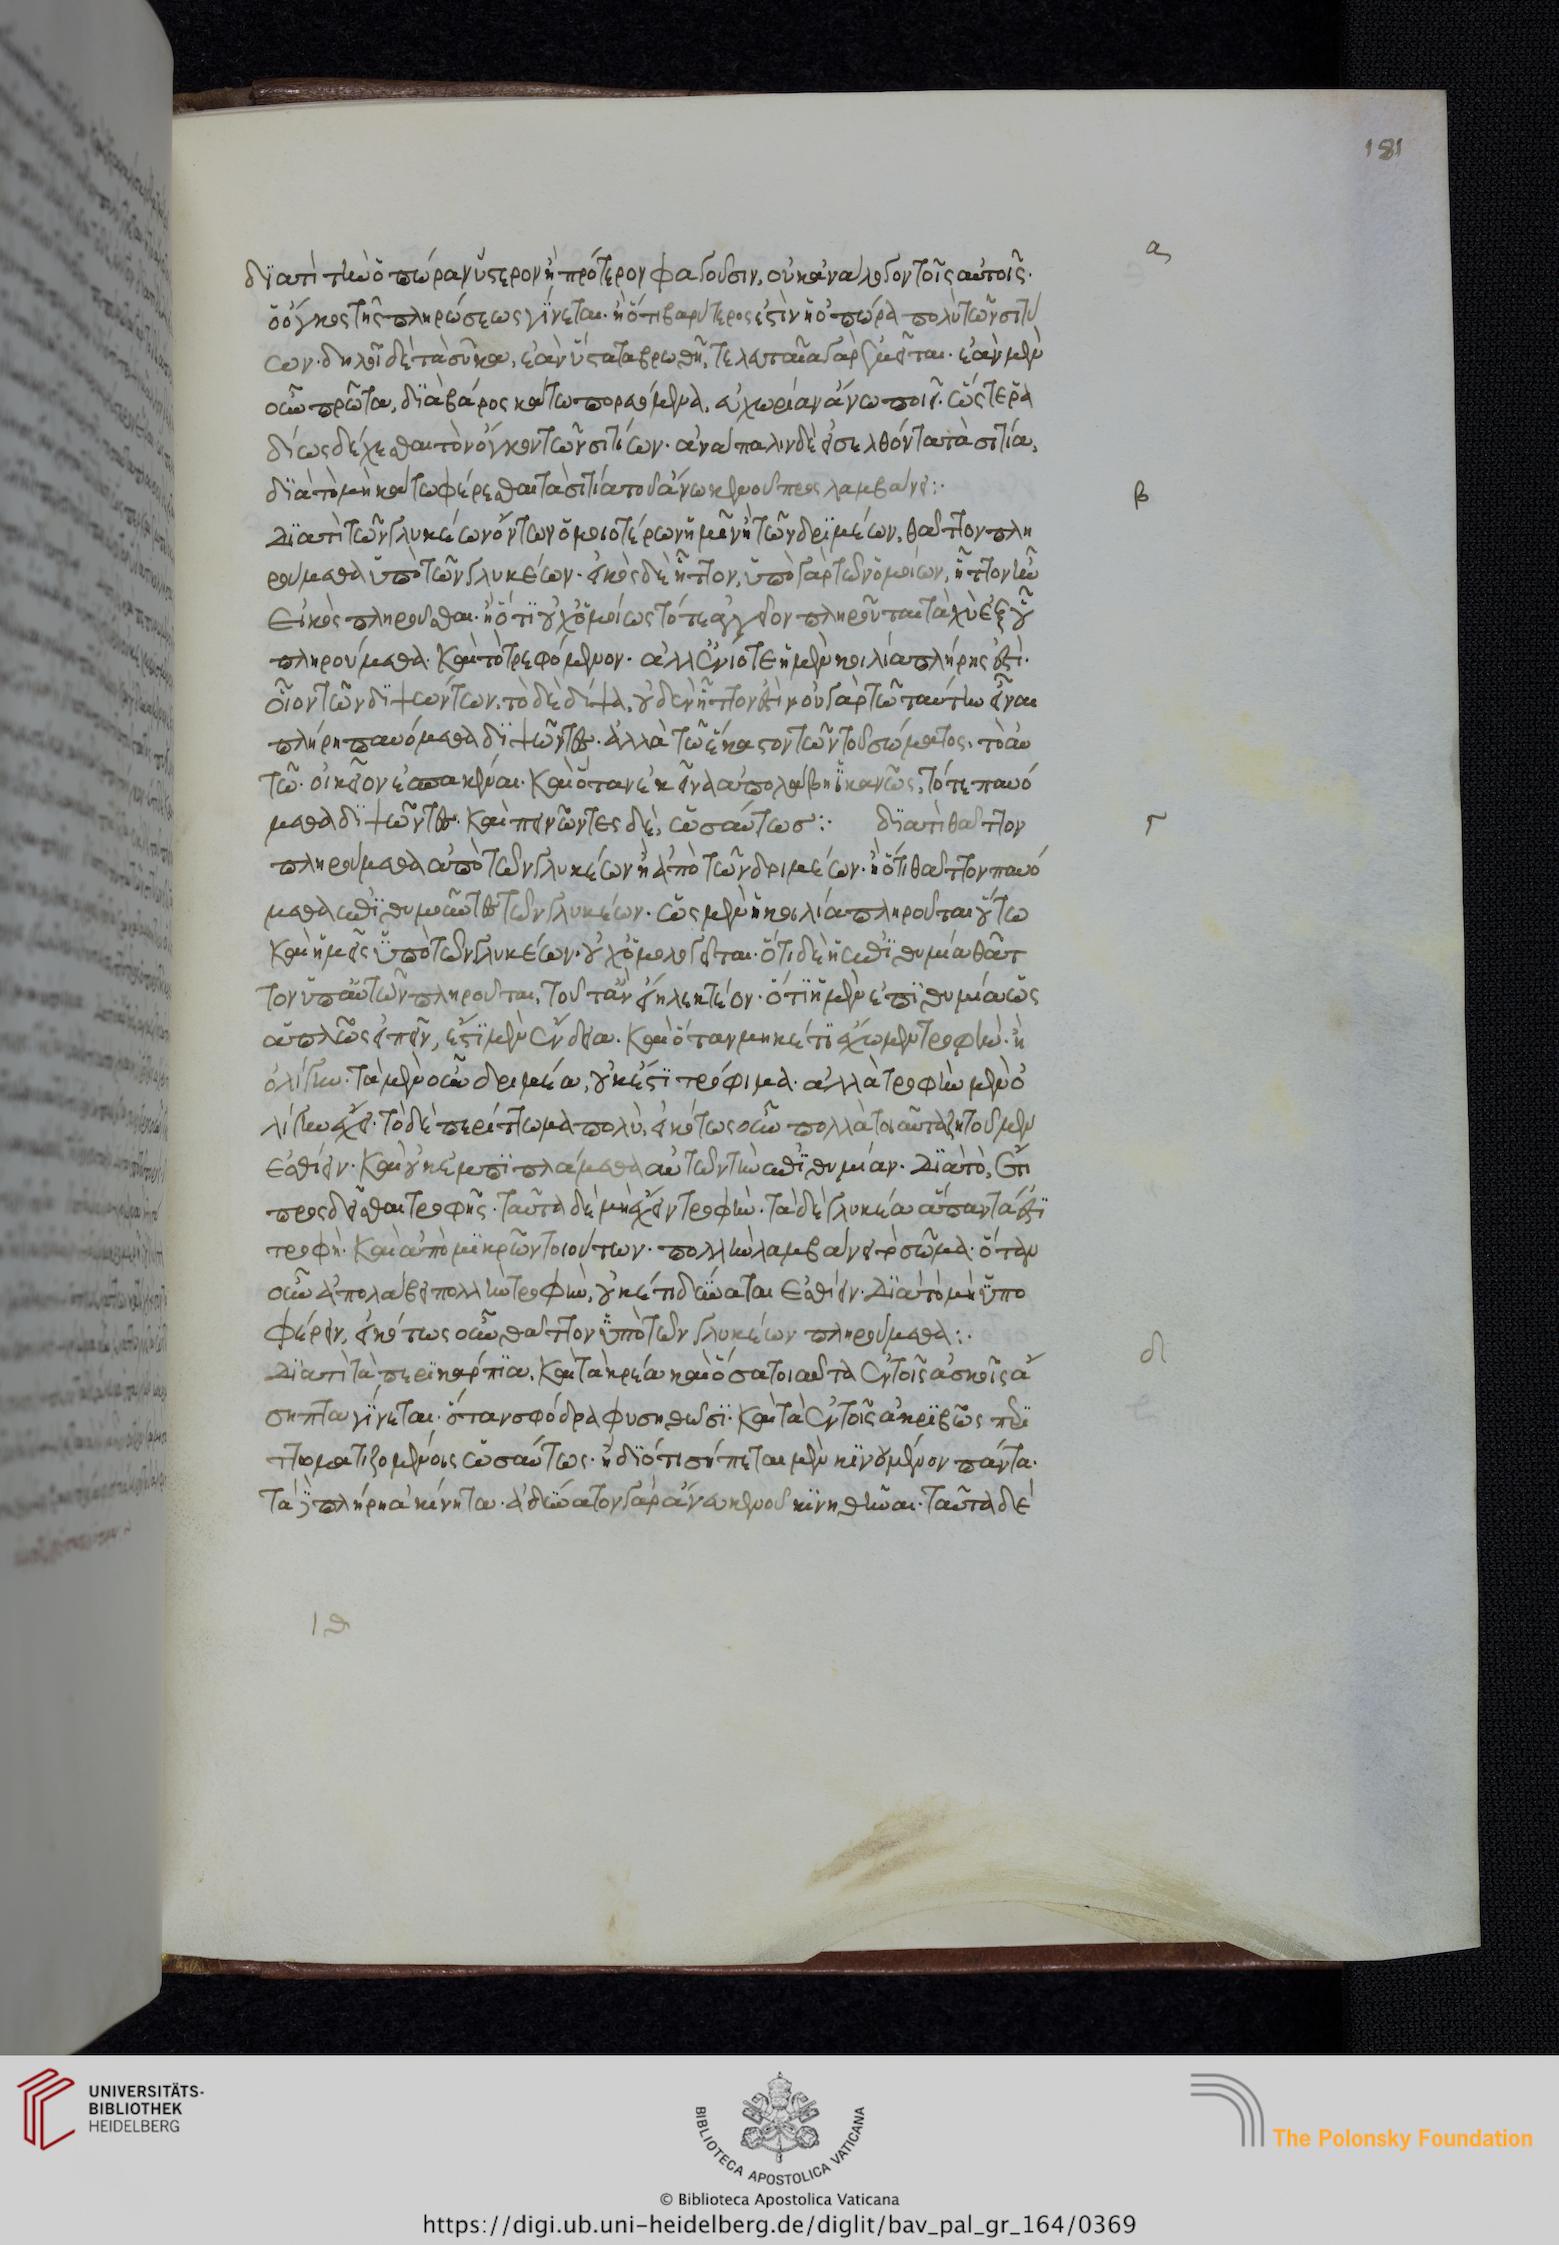 181
α
διατί τὴν ὀπώραν ὕστερον ἢ πρότερον φαγοῦσιν, οὐκ ἀνάλογον τοῖς αὐτοῖς.
ὁ ὄγκος τῆς πληρώσεως γίνεται. ἢ ὅτι βαρύτερος ἐστὶν ἡ ὀπώρα πολὺ τῶν σιτί
ων. δηλοῖ δὲ τὰ σῦκα, ἐὰν ὕστατα βρωθῆ, τελευταῖα γὰρ ἐμεῖται. ἐὰν μὲν
οὖν πρῶτα, διὰ βάρος κάτω πορευόμενα, εὐχωρίαν ἄνω ποιεῖ. ὥστε ῥα
δίως δέχεσθαι τὸν ὄγκον τῶν σιτίων. ἀνάπαλιν δὲ εἰσελθόντα τὰ σιτία,
διὰ τὸ μὴ κάτω φέρεσθαι τὰ σιτία τοῦ ἄνω κενοῦ προσλαμβάνει:.
β
Διατί τῶν γλυκέων ὄντων ὁμοιοτέρων ἡμῖν ἢ τῶν δριμέων, θᾶττον πλη
ρούμεθα ὑπὸ τῶν γλυκέων. εἰκὸς δὲ ἧττον, ὑπὸ γὰρ τῶν ὁμοίων, ἧττον ἦν
εἰκὸς πληροῦσθαι. ἢ ὅτι οὐχ ὁμοίως τό τε ἀγγεῖον πληροῦται ταχὺ ἐξ οὗ
πληρούμεθα. καὶ τὸ τρεφόμενον. ἀλλ' ἐνίοτε ἡ μὲν κοιλία πλήρης ἐστί.
οἷον τῶν διψώντων. τὸ δὲ δίψα, οὐδὲν ἧττον ἐστὶν οὐ γὰρ τῶ ταύτην εἶναι
πλήρη παυόμεθα διψῶντες. ἀλλὰ τῶ ἕκαστον τῶν τοῦ σώματος, τὸ αὐ
τῶ. οἰκεῖον ἐσπακέναι. καὶ ὅταν ἐκεῖνα ἀπολάβη ἱκανῶς, τότε παυό
μεθα διψῶντες. καὶ πεινῶντες δὲ, ὡσαύτωσ:. διατί θᾶττον
γ
πληρούμεθα ἀπὸ τῶν γλυκέων ἢ ἀπὸ τῶν δριμέων. ἢ ὅτι θᾶττον παυό
μεθα ἐπιθυμοῦντες τῶν γλυκέων. ὡς μὲν ἡ κοιλία πληροῦται οὕτω
καὶ ἡμεῖς ὑπὸ τῶν γλυκέων. οὐχ ὁμολογεῖται. ὅτι δὲ ἡ ἐπιθυμία θᾶτ
τον ὑπ' αὐτῶν πληροῦται, τοῦτ' ἂν εἴη λεκτέον. ὅτι ἡ μὲν ἐπιθυμία ὡς
ἁπλῶς εἰπεῖν, ἔστι μὲν ἔνδεια. καὶ ὅταν μηκέτι ἔχωμεν τροφήν. ἢ
ὀλίγην. τὰ μὲν οὖν δριμέα, οὐκ ἔστι τρόφιμα. ἀλλὰ τροφὴν μὲν ὀ
λίγην ἔχει. τὸ δὲ περίττωμα πολὺ, εἰκότως οὖν πολλὰ τοιαῦτα ζητοῦμεν
ἐσθίειν. καὶ οὐκ ἐμπιπλάμεθα αὐτῶν τὴν ἐπιθυμίαν. Διὰ τὸ, ἔτι
προσδεῖσθαι τροφῆς. ταῦτα δὲ μὴ ἔχειν τροφήν. τὰ δὲ γλυκέα ἅπαντά ἐστι
τροφή. καὶ ἀπὸ μικρῶν τοιούτων. πολλὴν λαμβάνει τὸ σῶμα. ὅταν
οὖν ἀπολάβει πολλὴν τροφὴν, οὐκέτι δύναται ἐσθίειν. Διὰ τὸ μὴ ὑπο
φέρειν, εἰκότως οὖν θᾶττον ὑπὸ τῶν γλυκέων πληρούμεθα:.
δ
Διατί τὰ περικάρπια, καὶ τὰ κρέα καὶ ὅσα τοιαῦτα ἐν τοῖς ἀσκοῖς ἄ
σηπτα γίνεται. ὅταν σφόδρα φυσηθῶσι. καὶ τὰ ἐν τοῖς ἀκριβῶς περι
πωματιζομένοις ὡσαύτως. ἢ διότι σήπεται μὲν κινούμενον πάντα.
τὰ δὲ πλήρη ἀκίνητα. ἀδύνατον γὰρ ἄνευ κενοῦ κινηθῆναι. ταῦτα δὲ
ιθ
UNIVERSITÄTS-
BIBLIOTHEK
HEIDELBERG
BIBLIOTECA APOSTOLICA VATICANA
The Polonsky Foundation
© Biblioteca Apostolica Vaticana
https://digi.ub.uni-heidelberg.de/diglit/bav_pal_gr_164/0369